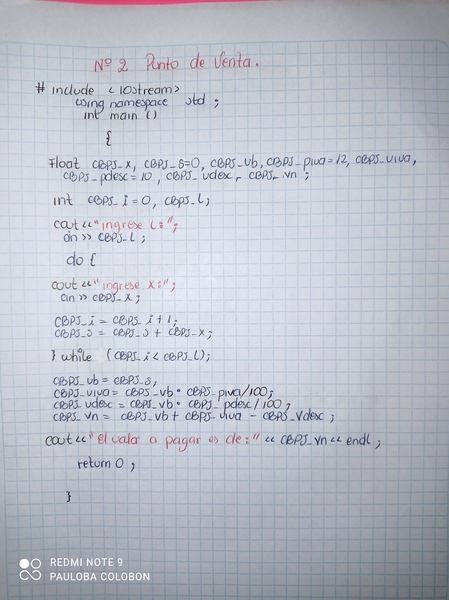 Nº 2 Punto de Venta.
# include <iostream>
using namespace std ;
int main ()
{
Float CBPJ_x, CBPJ_s=0, CBPJ_vb, CBPJ_piva=12, CBPJ_viva,
CBPJ_pdesc=10, CBPJ_vdesc, CBPJ_vn ;
int CBPJ_i=0, CBPJ_L;
cout<<"ingrese L:";
cin>> CBPJ_L ;
do {
cout<<"ingrese x:";
cin>> CBPJ_x;
CBPJ_i = CBPJ_i + 1;
CBPJ_s = CBPJ_s + CBPJ_x;
} while (CBPJ_i < CBPJ_L);
CBPJ_vb = CBPJ_s,
CBPJ_viva = CBPJ_vb * CBPJ_piva/100;
CBPJ_vdesc = CBPJ_vb * CBPJ_pdesc/100;
CBPJ_vn = CBPJ_vb + CBPJ_viva - CBPJ_vdesc;
cout<<"El valor a pagar es de:"<< CBPJ_vn<< endl ;
return 0 ;
}
REDMI NOTE 9
PAULOBA COLOBON